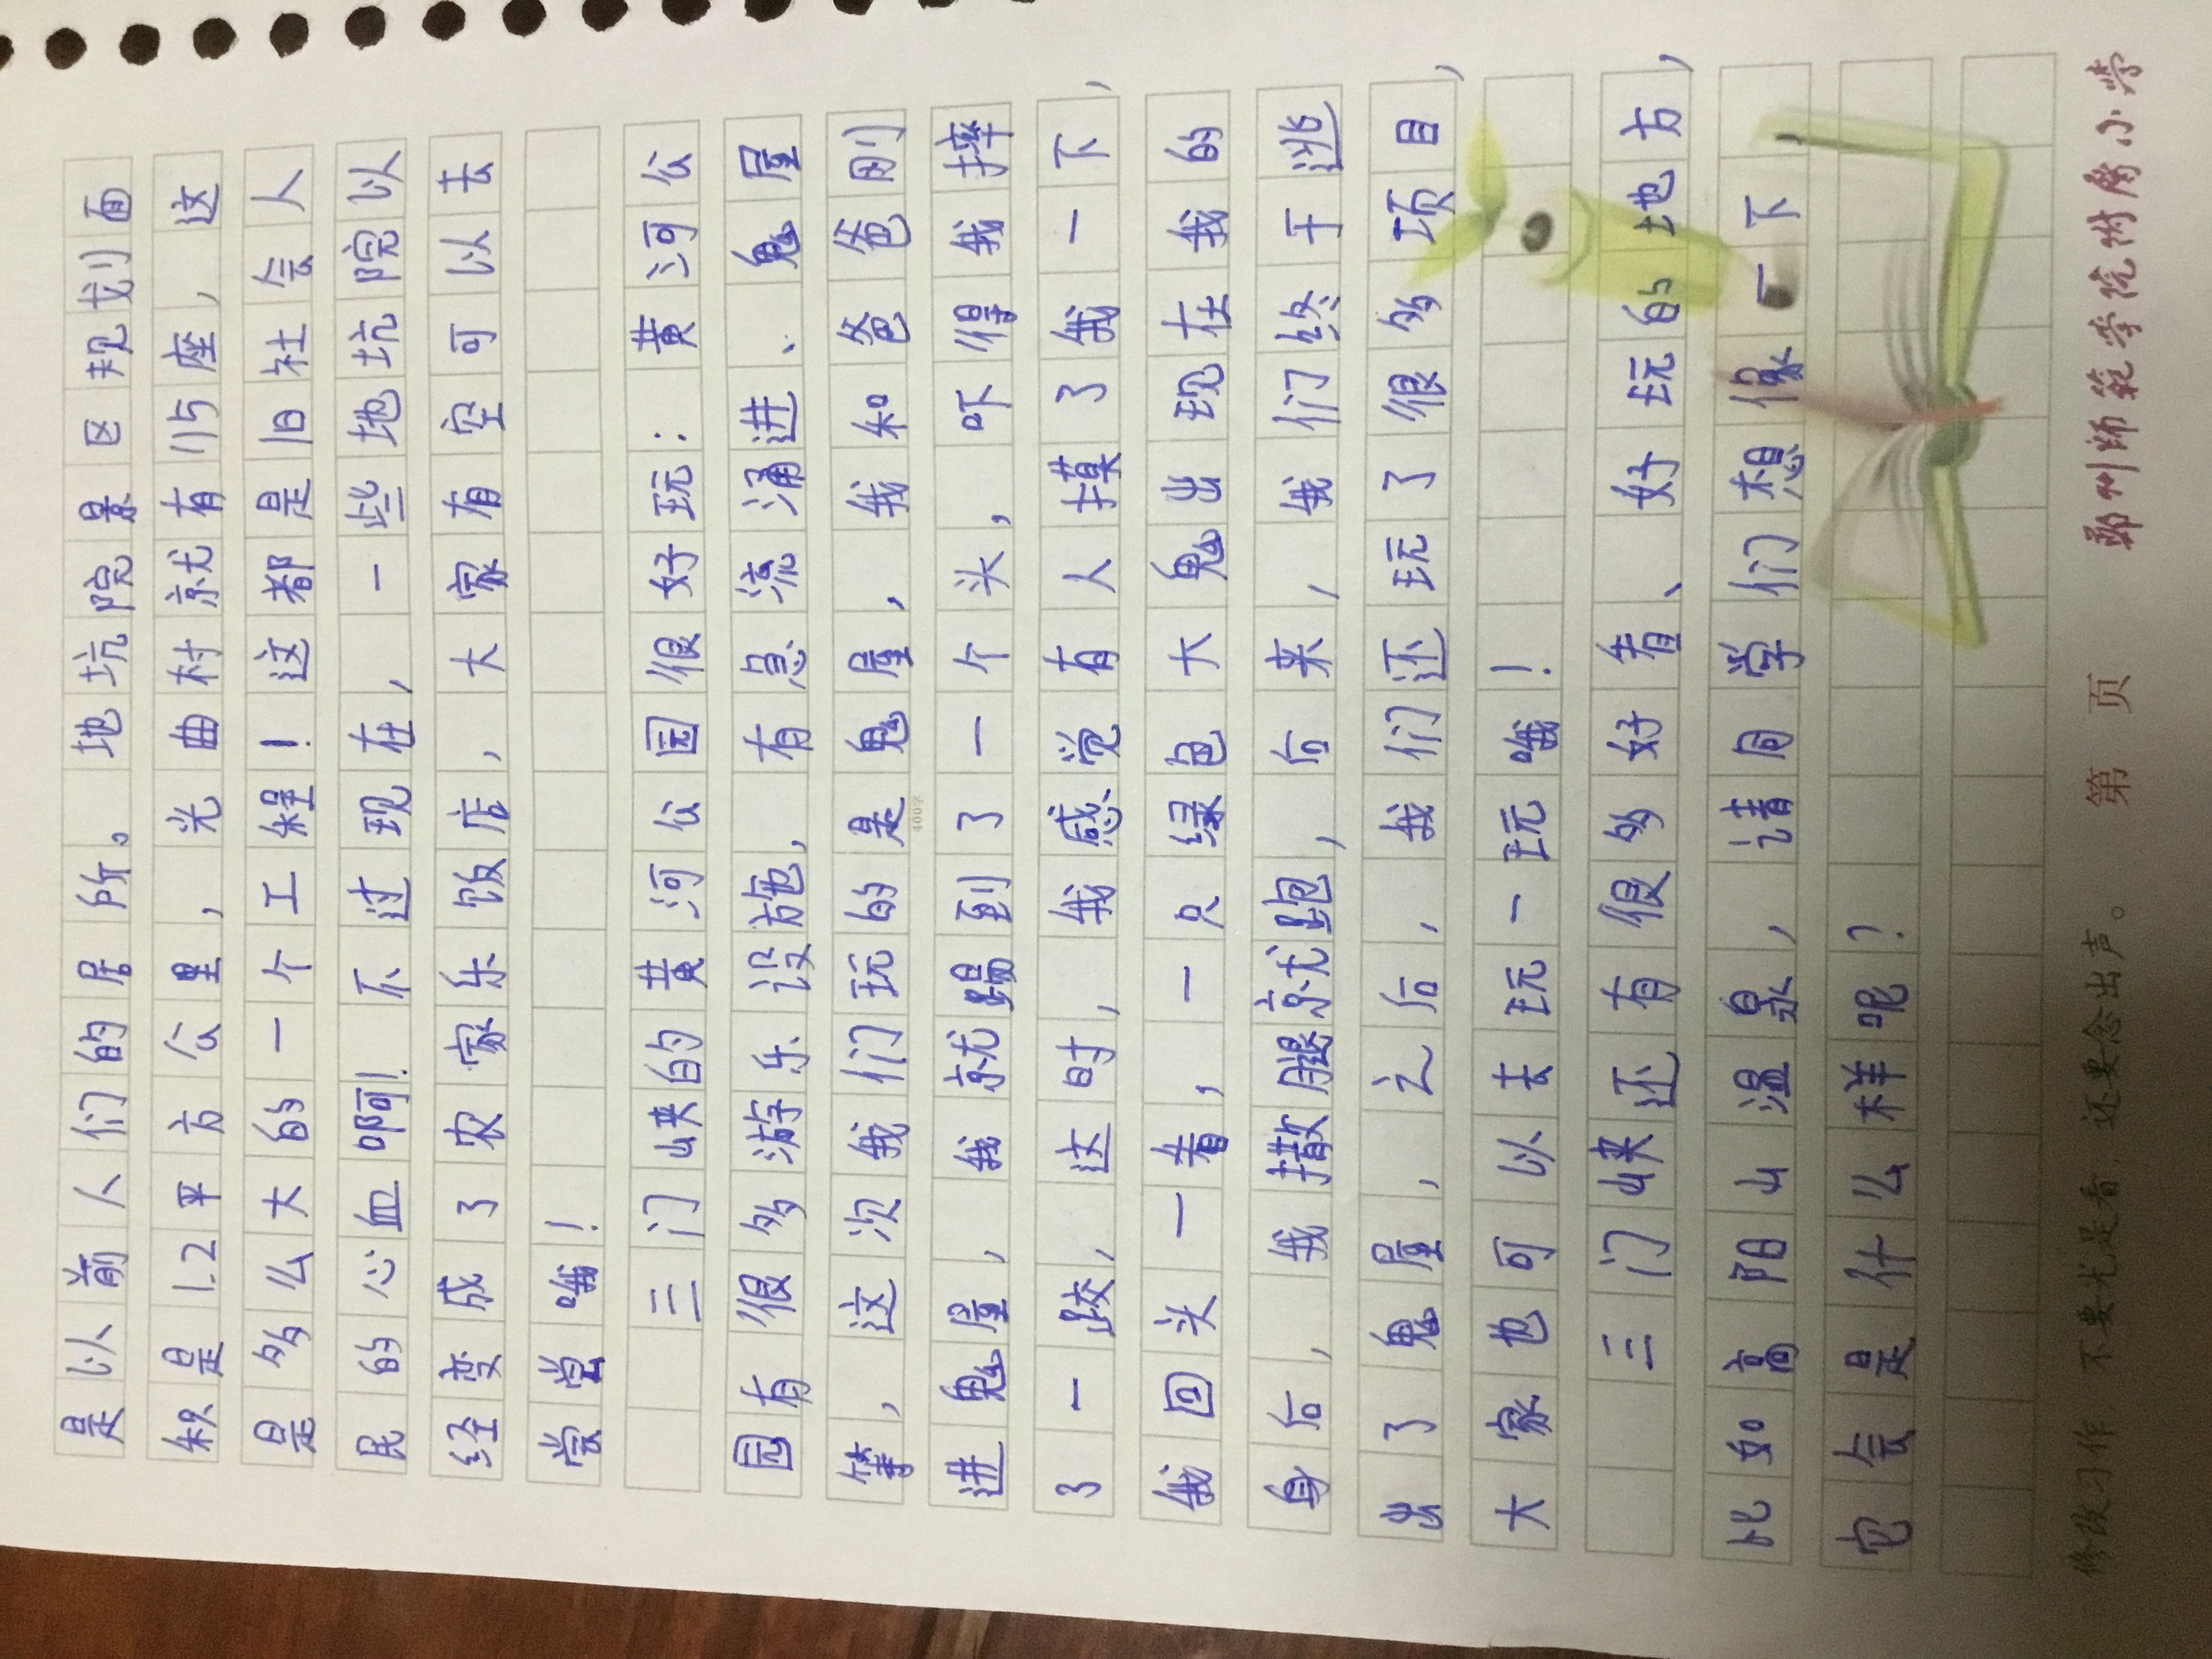 是以前人们的居所。地坑院景区规划面
积是1.2平方公里，光曲村就有115座，这
是多么大的一个工程！这都是旧社会人
民的心血啊！不过现在，一些地坑院以
经变成了农家乐饭店，大家有空可以去
尝尝哦！
三门峡的黄河公园很好玩：黄河公
园有很多游乐设施，有急流涌进、鬼屋
等，这次我们玩的是鬼屋，我和爸爸刚
进鬼屋，我就踢到了一个头，吓得我摔
了一跤，这时，我感觉有人摸了我一下，
我回头一看，一只绿色大鬼出现在我的
身后，我撒腿就跑，后来，我们终于逃
出了鬼屋，之后，我们还玩了很多项目，
大家也可以去玩一玩哦！
三门峡还有很多好看、好玩的地方，
比如高阳山温泉，请同学们想像一下
它会是什么样呢？
400字
修改习作，不要光是看，还要念出声。 第 页 郑州师范学院附属小学